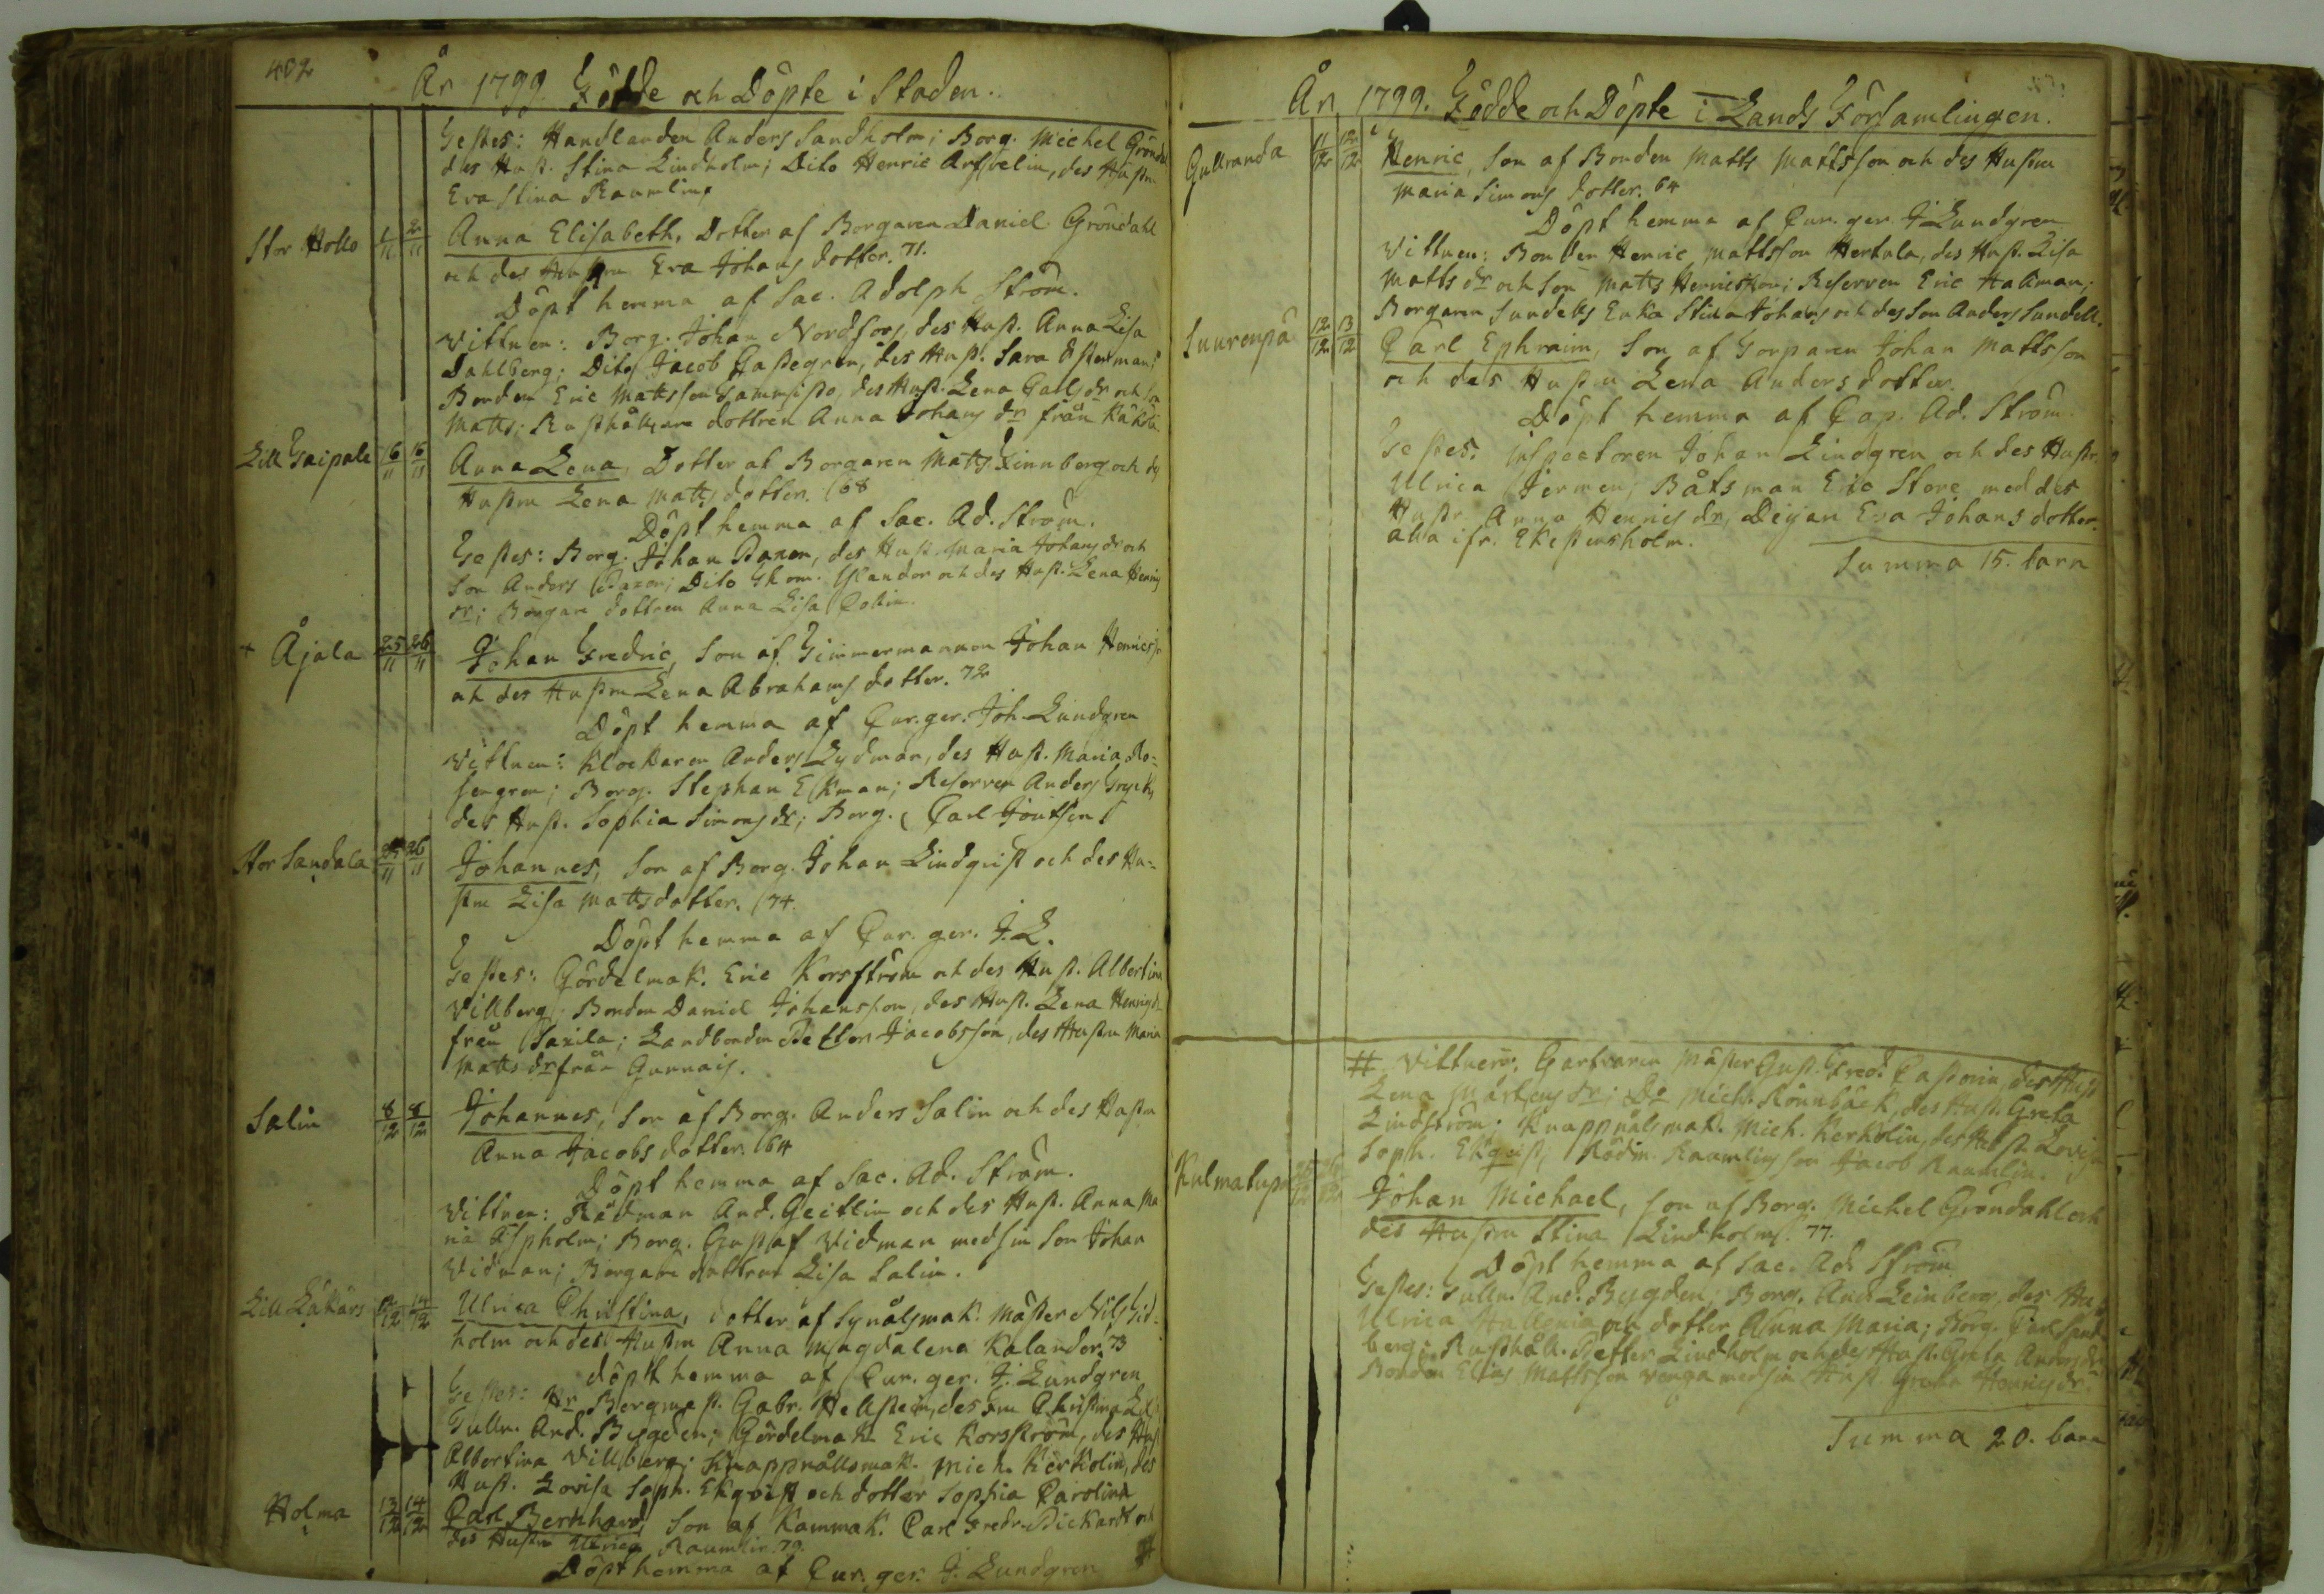 402
År 1799. Födde och Döpte i Staden.
Testes: Handlanden Anders Sandholm; Borg. Michel Gröndal
des Hust. Stina Lindholm; Dito Henric Arfvelin, des Hustru
Eva Stina Raumlin
Stor Hollo 1/11 2/11 Anna Elisabeth, Dotter af Borgaren Daniel Gröndahl
och des Hustru Eva Johans dotter. 71.
Döpt hemma af Sac. Adolph Ström.
Vittnen: Borg. Johan Nordfors, des Hust. Anna Lisa
Dahlberg; Dito Jacob des Hust. Sara Österman;
Bonden Eric Mattsson des Hust. Lena dr och Son
Matts; Rusthållare dottren Anna Johans dr från
Lill Gaipale 16/11 16/11 Anna Lena, Dotter af Borgaren Matts Finnberg och des
Hustru Lena Matts dotter. 68
Döpt hemma af Sac. Ad. Ström.
Testes: Borg. Johan des Hust. Maria Johans dr och
Son Anders Dito och des Hust. Lena Henrics
dr; Borgare dottren Anna Lisa
+ Åjala 25/11 26/11 Johan Fredric, Son af Timmermannen Johan Henricss.
och des Hustru Lena Abrahams dotter. 72
Döpt hemma af Cur. ger. Joh. Lundgren
Vittnen: Klockaren Anders Lydman, des Hust. Maria Ro-
sengren; Borg. Stephan Ekman; Reserven Anders
des Hust. Sophia Simons dr; Borg. Carl
Stor Sandala 26/11 Johannes, Son af Borg. Johan Lindqvist och des Hu-
stru Lisa Mattsdotter. 74.
Döpt hemma af Cur. ger. J. L.
Testes: Gördelmak. Eric Korsström och des Hust. Albertina
Villberg; Bonden Daniel Johansson, des Hust. Lena Henrics dr
från Saxila; Landbonden Petter Jacobsson, des Hustru Maria
Matts dr från Gunnais.
Salin 8/12 8/12 Johannes, Son af Borg. Anders Salin och des Hustru
Anna Jacobs dotter. 64
Döpt hemma af Sac. Ad. Ström.
Vittnen: Rådman And. Geitlin och des Hust. Anna Ma
ria Aspholm; Borg. Gustaf Vidman med sin Son Johan
Vidman; Borgare dottren Lisa Salin.
Lill 14/12 Ulrica Christina, dotter af Synålsmak. Mäster Nils Sid-
holm och des Hustru Anna Magdalena Kalander. 73
döpt hemma af Cur. ger. J. Lundgren
Testes: Hr Bergmäst. Gabr. Hellstein, des Fru Christina
Tulln. And. Bygden; Gördelmak. Eric Korsström, des Hust
Albertina Villberg; Knappnålsmak. Mich. Kerkolin, des
Hust. Lovisa Soph. Ekqvist och dotter Sophia Carolina
Holma 13/12 14/12 Carl Bernhard, Son af Kammak. Carl Fredr. Pickardt och
des Hustru Ulrica Raumlin. 79.
Döpt hemma af Cur. ger. J. Lundgren #
År 1799. Födde och Döpte i Lands Församlingen.
Gullranda 11/12 12/12 Henric, Son af Bonden Matts Mattsson och des Hustru
Maria Simons dotter. 64
Döpt hemma af Cur. ger. J Lundgren
Vittnen: Bonden Henric Mattsson Hertula, des Hust. Lisa
Matts dr och Son Matts Henricsson; Reserven Eric Hallman;
Borgaren Sundells Enka Stina Johans och des Son Anders Sundell.
Luurenpä 12/12 13/12 Carl Ephraim, Son af Torparen Johan Mattsson
och des Hustru Lena Anders dotter.
Döpt hemma af Cap. Ad. Ström.
Testes. Inspectoren Johan Lindgren och des Hustr.
Ulrica Båtsman Eric Store med des
Hustr. Anna Henrics dr, Deijan Eva Johans dotter.
alla ifr. Ekestensholm.
Summa 15. barn
# Vittnen: Garfvaren Mäster Gust. Fred. des Hust
Lena Mårtens dr; Do Mich. Rönnbäck, des Hust. Greta
Lindström; Knappnålsmak. Mich. Kerkolin, des Hust. Lovisa
Soph. Ekqvist, Rådm. Raumlins son Jacob Raumlin.
Kulmatupa Johan Michael, Son af Borg. Michel Gröndahl och
des Hustru Stina Lindholm. 77.
Döpt hemma af Sac. Ad. Ström
Testes: Tulln. And. Bygden; Borg. And. Leinberg, des Hu.
Ulrica och dotter Anna Maria; Borg. Carl Sand-
berg; Rusthåll. Petter Lindholm och des Hust. Greta Anders dr
Bonden Elias Mattsson med sin Hust Henrics dr.
Summa 20. barn